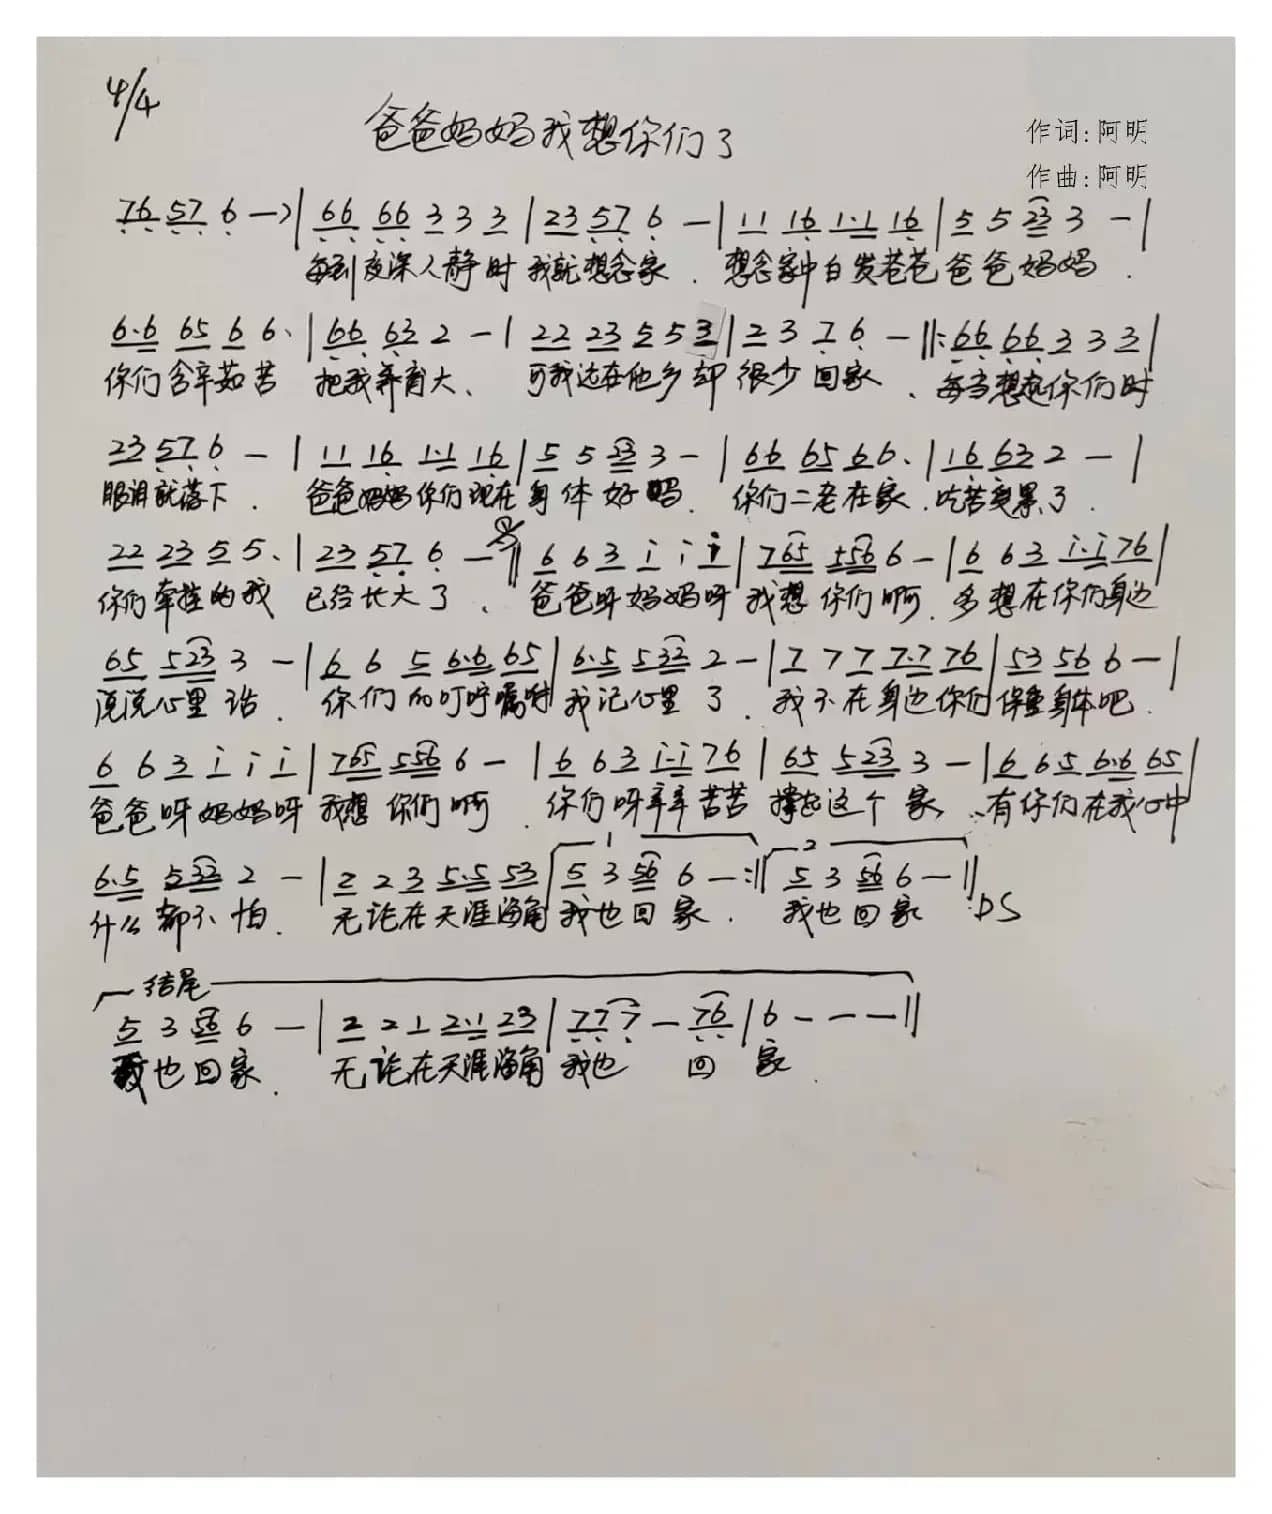 4/4
爸爸妈妈我想你们了
作词:阿明
作曲:阿明
76 57 6 —>| 66 66 3 3 3 | 23 57 6 — | 11 16 1·1 16 | 5 5 23 3 — |
每到夜深人静时 我就想念家 . 想念家中白发苍苍 爸爸妈妈 .
6·6 65 6 6· | 66 63 2 — | 22 23 5 5 3 | 2 3 7 6 — ‖: 66 66 3 3 3 |
你们含辛茹苦 把我养育大、 可我远在他乡却 很少回家 、 每当想起你们时
23 57 6 — | 11 16 1·1 16 | 5 5 23 3 — | 66 65 6 6· | 16 63 2 — |
眼泪就落下 . 爸爸妈妈你们现在 身体好吗 . 你们二老在家 . 吃苦受累了 .
22 23 5 5· | 23 57 6 — ‖ 6 6 3 i i i | 765 556 6 — | 6 6 3 i·i 76 |
你们牵挂的我 已经长大了 、 爸爸呀妈妈呀 我想你们啊 . 多想在你们身边
65 523 3 — | 6 6 5 6·6 65 | 6·5 532 2 — | 7 7 7 7·7 76 | 53 56 6 — |
说说心里话 . 你们的叮咛嘱咐 我记心里了 . 我不在身边你们 保重身体吧 .
6 6 3 i i i | 765 556 6 — | 6 6 3 i·i 76 | 65 523 3 — | 6 6 5 6·6 65 |
爸爸呀妈妈呀 我想你们啊 . 你们呀辛辛苦苦 撑起这个家 、 有你们在我心中
1 2
6·5 532 2 — | 2 2 3 5·5 53 | 5 3 56 6 — :‖ 5 3 56 6 — ‖ DS
什么都不怕 . 无论在天涯海角 我也回家 . 我也回家
结尾
5 3 56 6 — | 2 2 1 2·1 23 | 7 7 7 — 76 | 6 — — — ‖
我也回家 . 无论在天涯海角 我也 回 家 .